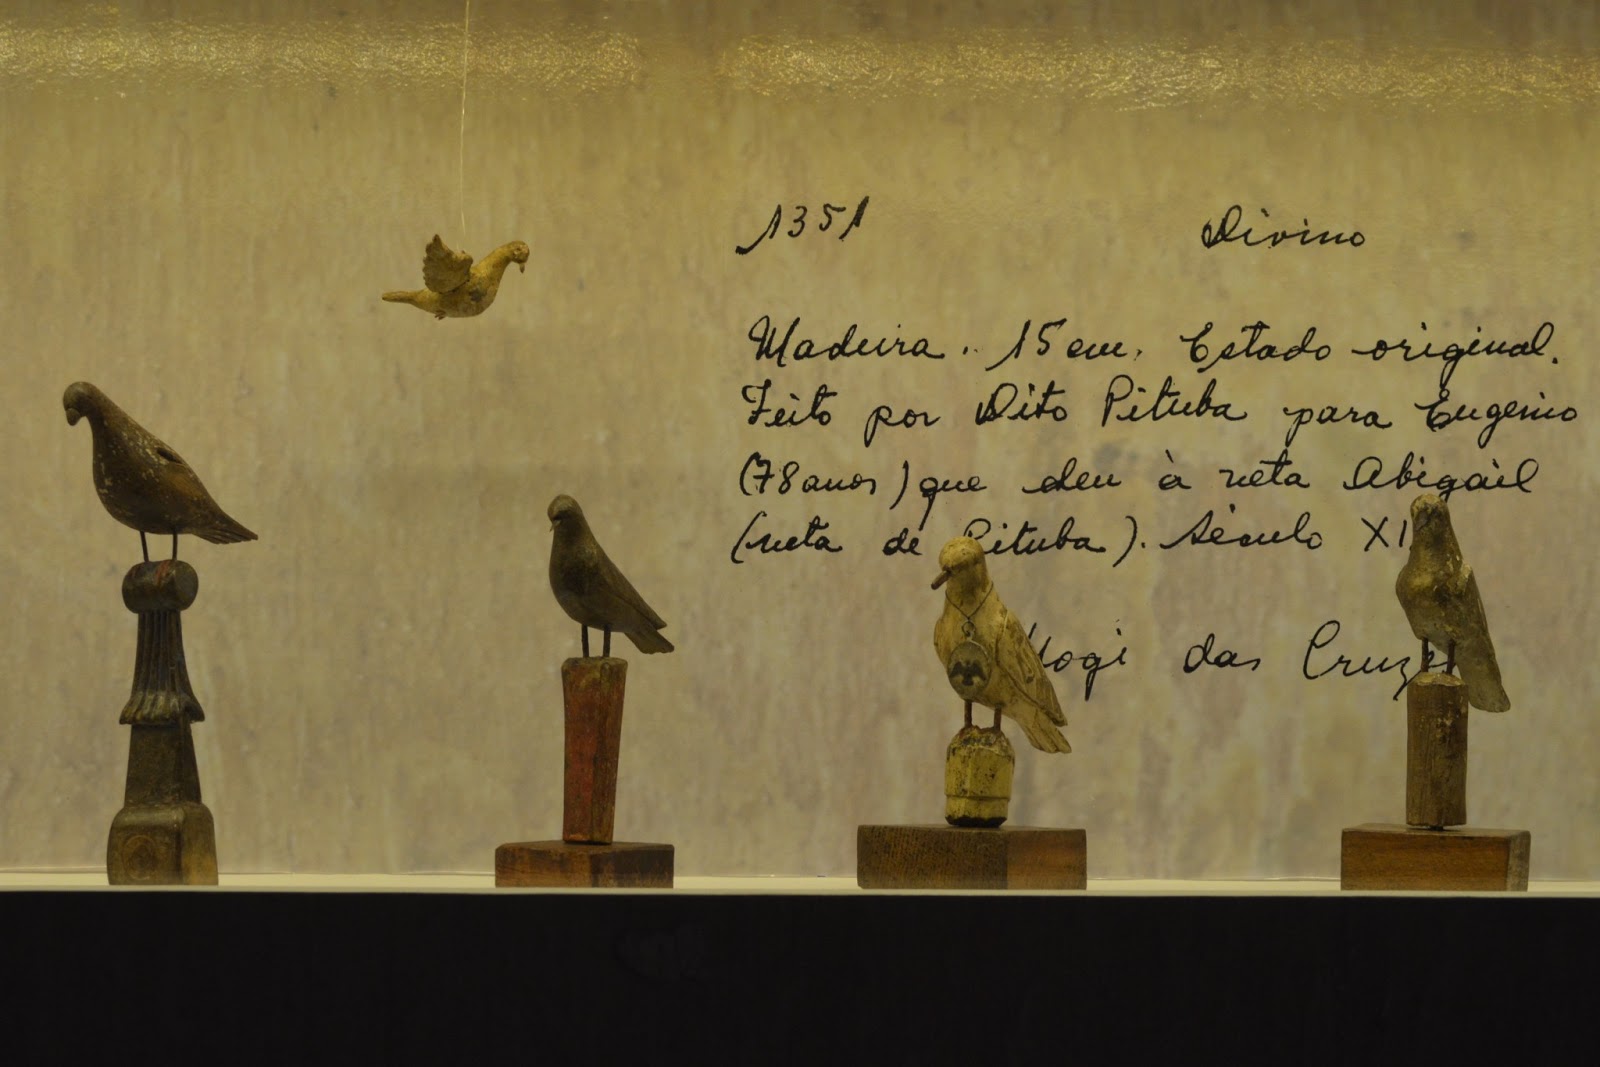 1351 Divino
Madeira. 15 cm. Estado original.
Feito por Dito Pituba para Eugenio
(78 anos) que deu à neta Abigail
(neta de Pituba). Século XI
Mogi das Cruzes